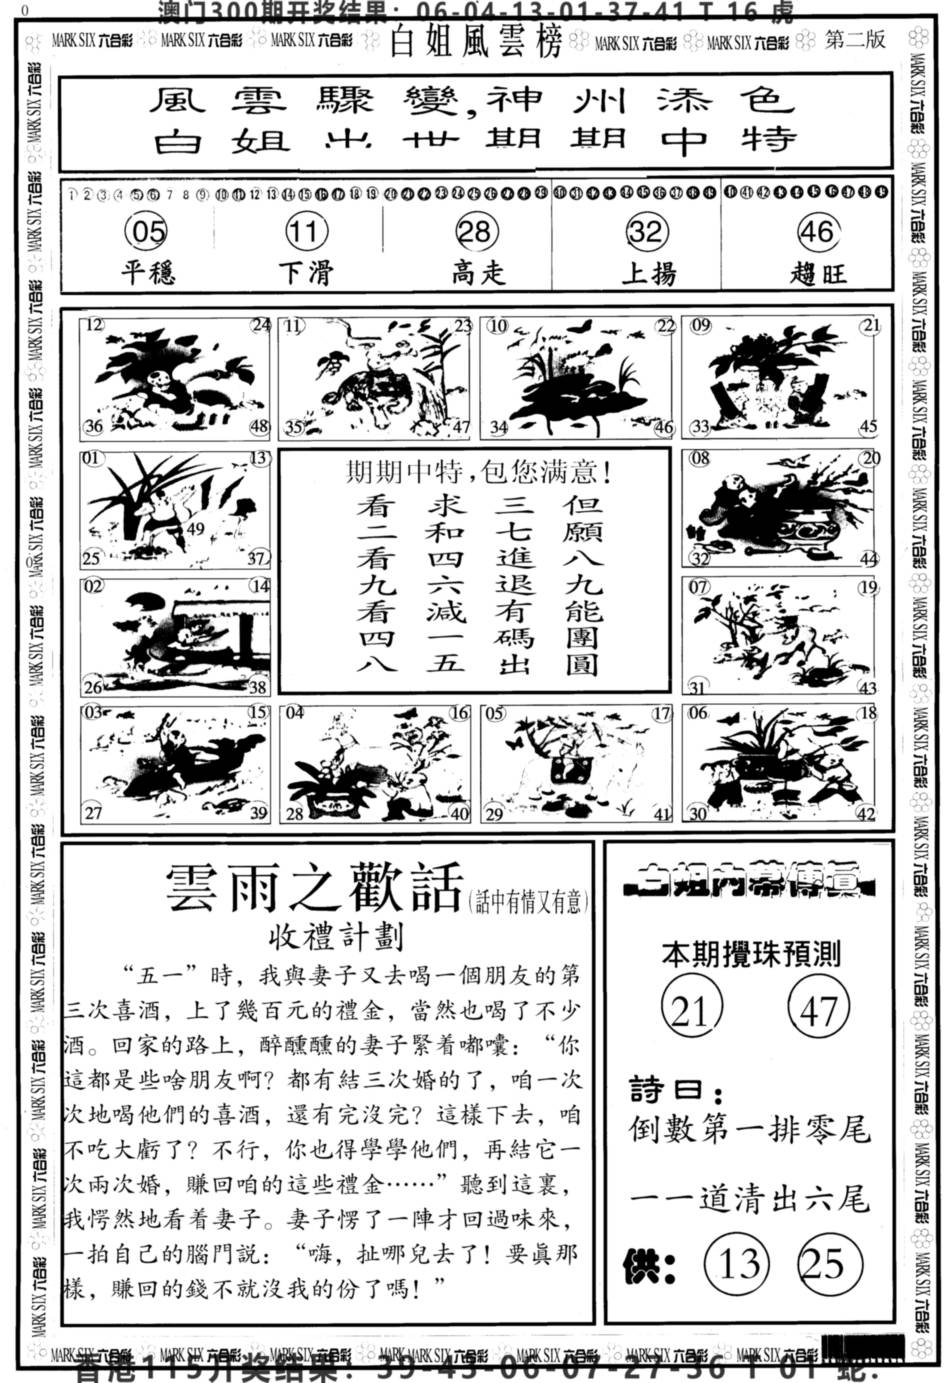 0
澳门300期开奖结果：06-04-13-01-37-41 T 16 虎
MARK SIX 六合彩 MARK SIX 六合彩 MARK SIX 六合彩 白姐風雲榜 MARK SIX 六合彩 MARK SIX 六合彩 第二版
風雲驟變,神州添色
白姐出世期期中特
1 2 3 4 5 6 7 8 9 10 11 12 13 14 15 16 17 18 19 20 21 22 23 24 25 26 27 28 29 30 31 32 33 34 35 36 37 38 39 40 41 42 43 44 45 46 47 48 49
05 11 28 32 46
平穩 下滑 高走 上揚 趨旺
12 24 11 23 10 22 09 21
36 48 35 47 34 46 33 45
01 13 08 20
49
25 37 32 44
02 14 07 19
26 38 31 43
03 15 04 16 05 17 06 18
27 39 28 40 29 41 30 42
期期中特,包您满意!
但願八九能團圓
三七進退有碼出
求和四六減一五
看二看九看四八
雲雨之歡話(話中有情又有意)
收禮計劃
“五一”時，我與妻子又去喝一個朋友的第
三次喜酒，上了幾百元的禮金，當然也喝了不少
酒。回家的路上，醉醺醺的妻子緊着嘟囔：“你
這都是些啥朋友啊？都有結三次婚的了，咱一次
次地喝他們的喜酒，還有完沒完？這樣下去，咱
不吃大虧了？不行，你也得學學他們，再結它一
次兩次婚，賺回咱的這些禮金……”聽到這裏，
我愕然地看着妻子。妻子愣了一陣才回過味來，
一拍自己的腦門説：“嗨，扯哪兒去了！要眞那
樣，賺回的錢不就沒我的份了嗎！”
白姐內幕傳眞
本期攪珠預測
21 47
詩曰：
倒數第一排零尾
一一道清出六尾
供： 13 25
MARK SIX 六合彩 MARK SIX 六合彩 MARK SIX 六合彩 MARK MARK SIX 六合彩 MARK SIX 六合彩 MARK SIX 六合彩 MARK SIX 六合彩
香港115开奖结果：39-43-06-07-27-36 T 01 蛇.